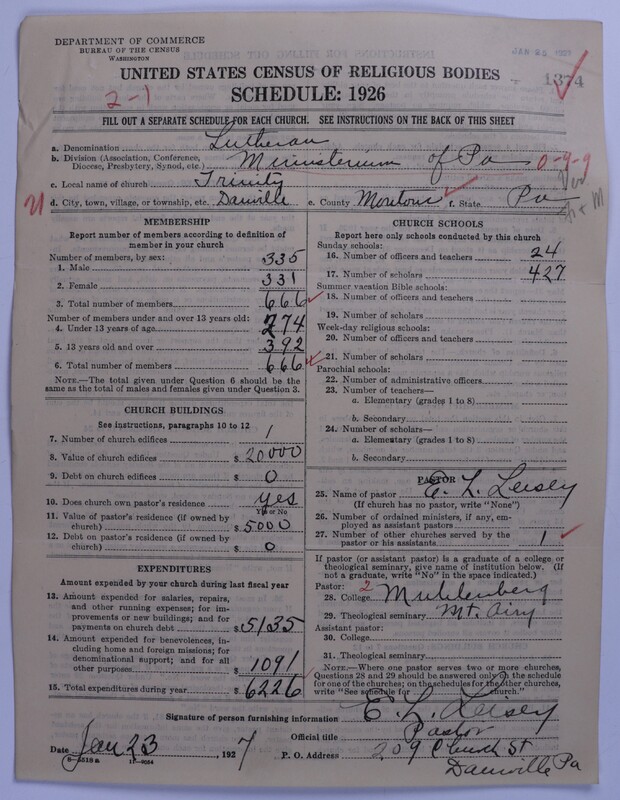 DEPARTMENT OF COMMERCE
BUREAU OF THE CENSUS
WASHINGTON
UNITED STATES CENSUS OF RELIGIOUS BODIES
1374
SCHEDULE: 1926
2-1
FILL OUT A SEPARATE SCHEDULE FOR EACH CHURCH. SEE INSTRUCTIONS ON THE BACK OF THIS SHEET
a. Denomination Lutheran
b. Division (Association, Conference, Diocese, Presbytery, Synod, etc.) Ministerium of Pa 0-9-9
c. Local name of church Trinity
d. City, town, village, or township, etc. Danville e. County Montour f. State Pa
MEMBERSHIP
Report number of members according to definition of
member in your church
Number of members, by sex:
1. Male 335
2. Female 331
3. Total number of members 666
Number of members under and over 13 years old:
4. Under 13 years of age 274
5. 13 years old and over 392
6. Total number of members 666
NOTE.—The total given under Question 6 should be
the same as the total of males and females given under Question 3.
CHURCH BUILDINGS
See instructions, paragraphs 10 to 12
7. Number of church edifices 1
8. Value of church edifices $ 20000
9. Debt on church edifices $ 0
10. Does church own pastor's residence? yes
Yes or No
11. Value of pastor's residence (if owned by
church) $ 5000
12. Debt on pastor's residence (if owned by
church) $ 0
EXPENDITURES
Amount expended by your church during last fiscal year
13. Amount expended for salaries, repairs,
and other running expenses; for im-
provements or new buildings; and for
payments on church debt $ 5135
14. Amount expended for benevolences, in-
cluding home and foreign missions; for
denominational support; and for all
other purposes $ 1091
15. Total expenditures during year $ 6226
CHURCH SCHOOLS
Report here only schools conducted by this church
Sunday schools:
16. Number of officers and teachers 24
17. Number of scholars 427
Summer vacation Bible schools:
18. Number of officers and teachers
19. Number of scholars
Week-day religious schools:
20. Number of officers and teachers
21. Number of scholars
Parochial schools:
22. Number of administrative officers
23. Number of teachers—
a. Elementary (grades 1 to 8)
b. Secondary
24. Number of scholars—
a. Elementary (grades 1 to 8)
b. Secondary
PASTOR
25. Name of pastor E. L. Leisey
(If church has no pastor, write "None")
26. Number of ordained ministers, if any, em-
ployed as assistant pastors
27. Number of other churches served by the
pastor or his assistants 1
If pastor (or assistant pastor) is a graduate of a college or
theological seminary, give name of institution below. (If
not a graduate, write "No" in the space indicated.)
Pastor: 2
28. College Muhlenberg
29. Theological seminary Mt. Airy
Assistant pastor:
30. College
31. Theological seminary
NOTE.—Where one pastor serves two or more churches,
Questions 28 and 29 should be answered only on the schedule
for one of the churches; on the schedules for the other churches,
write "See schedule for church."
Signature of person furnishing information E. L. Leisey
Official title Pastor
Date Jan 23, 1927 P. O. Address 209 Church St
Danville Pa